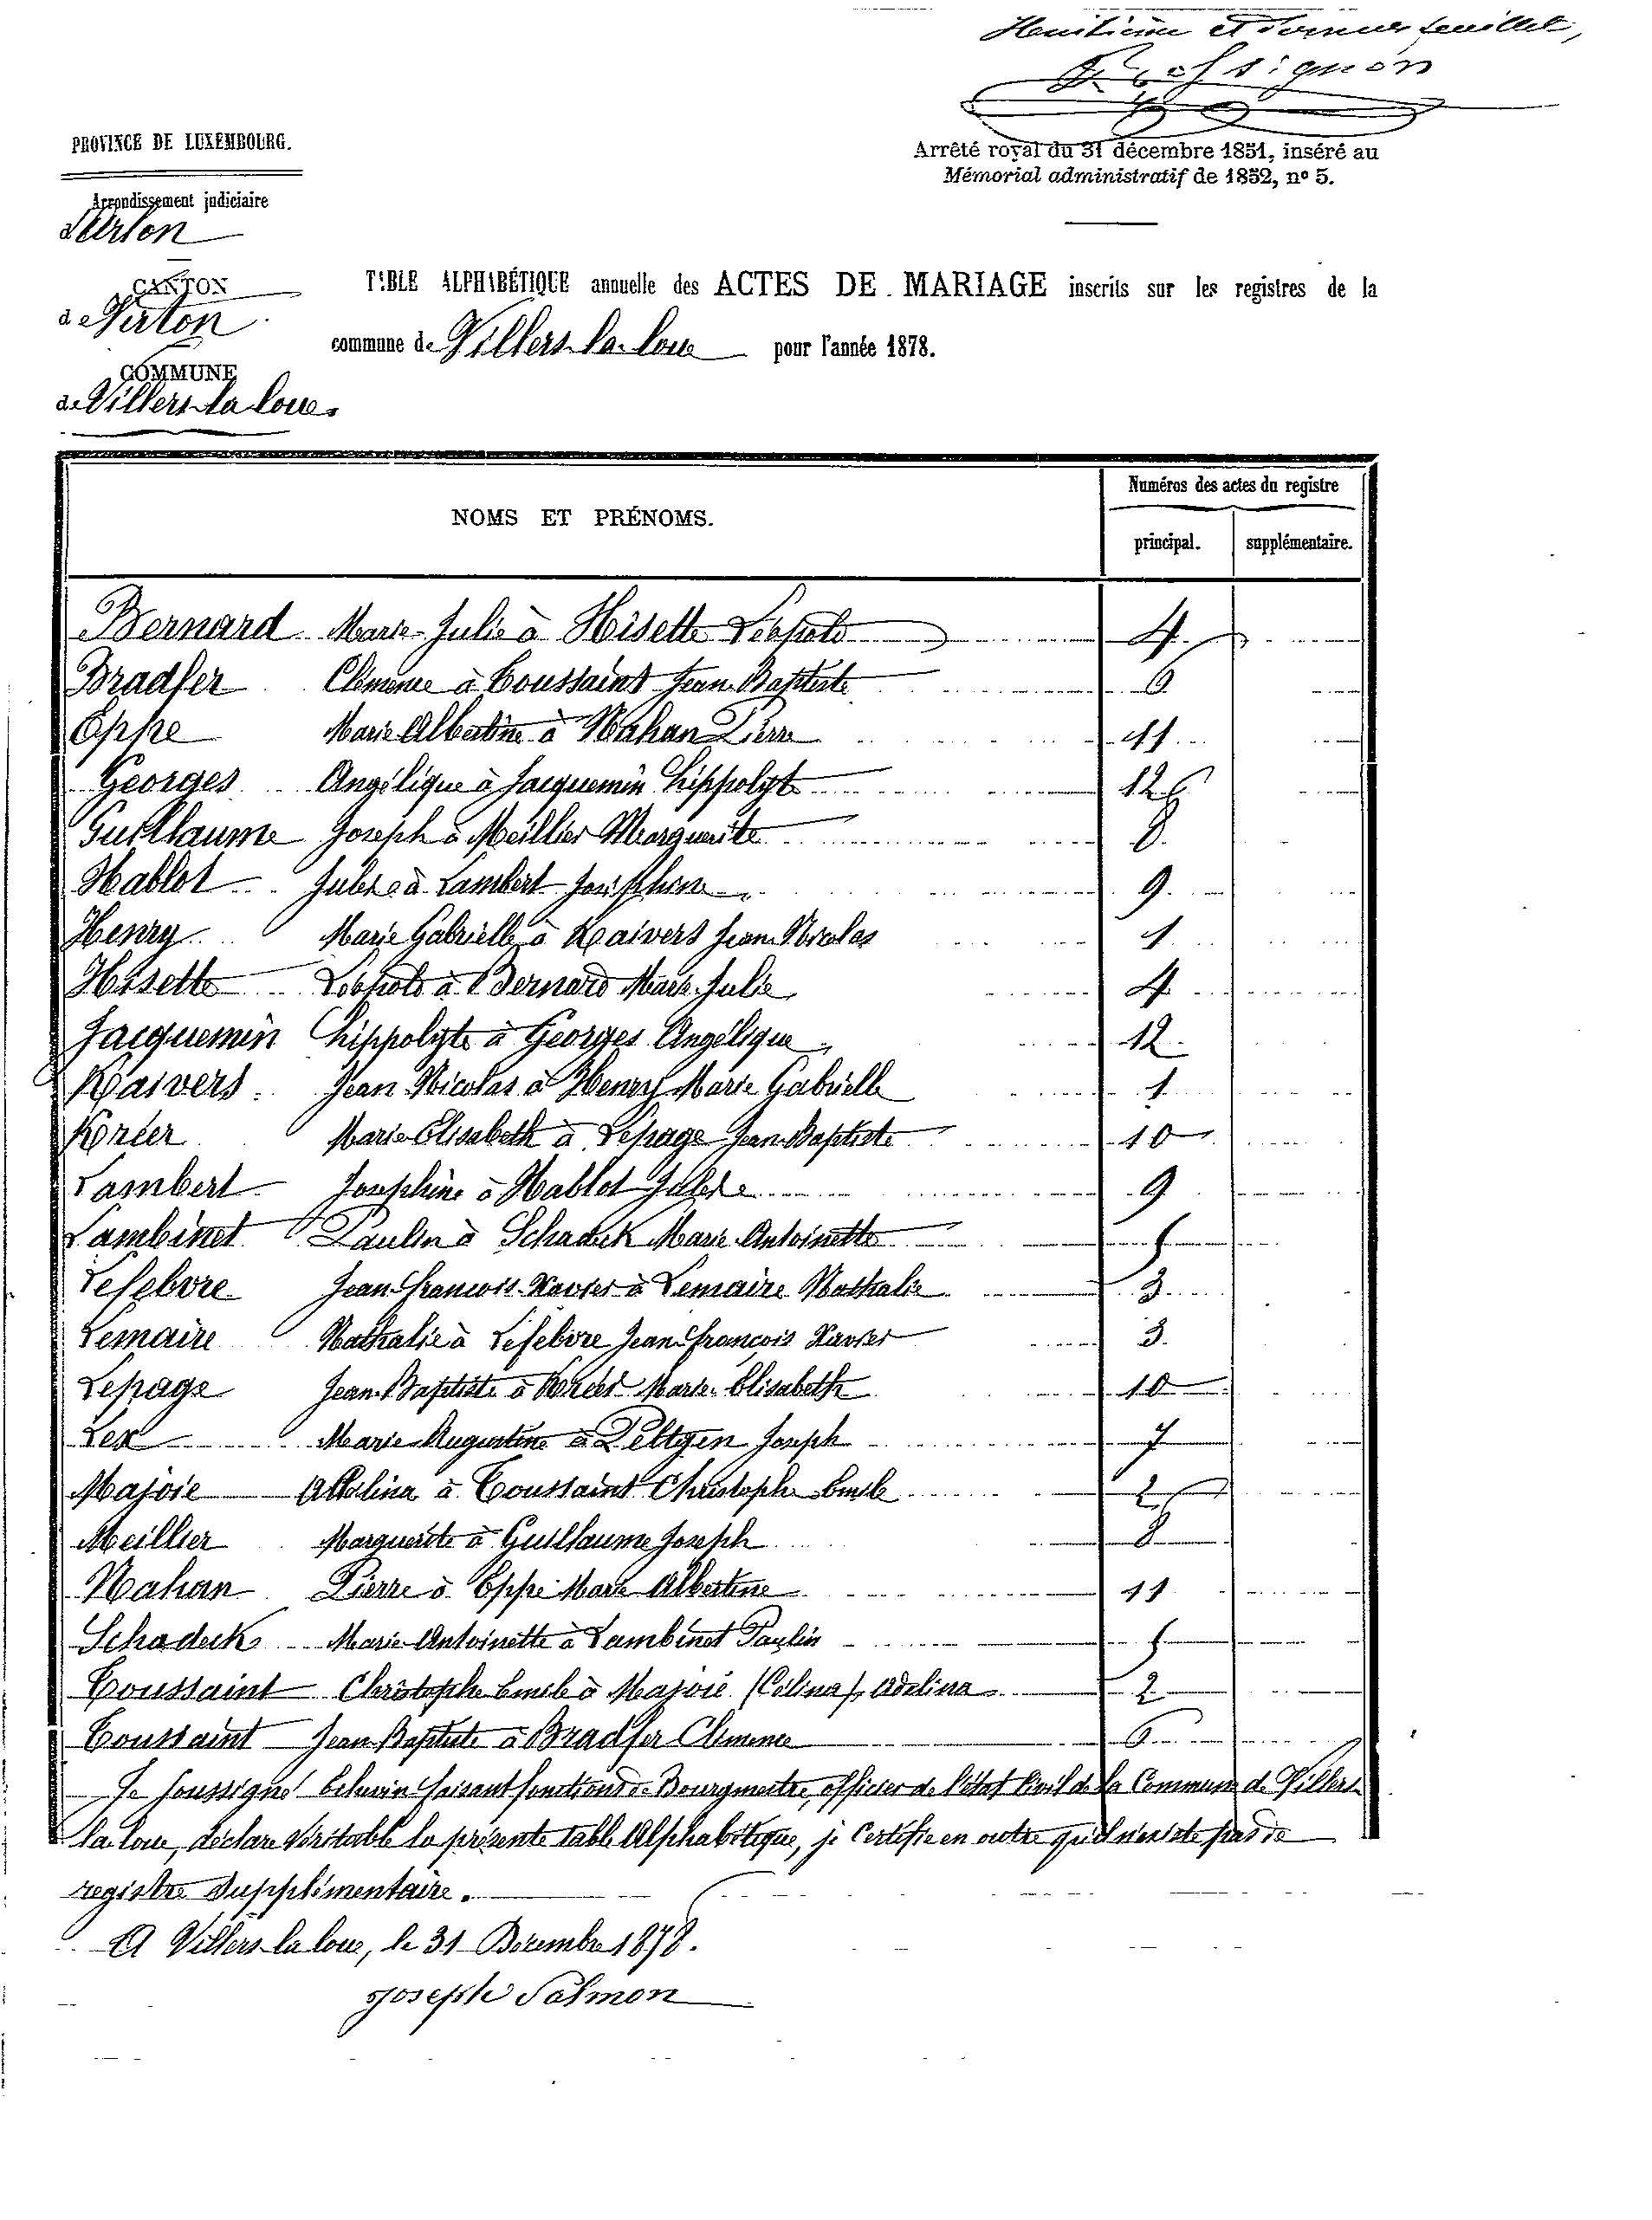 Huitième et dernier feuillet,
PROVINCE DE LUXEMBOURG.
Arrêté royal du 31 décembre 1851, inséré au
Mémorial administratif de 1852, nº 5.
Arrondissement judiciaire
d'Arlon
CANTON
de Virton
COMMUNE
de Villers-la-loue.
TABLE ALPHABÉTIQUE annuelle des ACTES DE MARIAGE inscrits sur les registres de la
commune de Villers-la-loue pour l'année 1878.
NOMS ET PRÉNOMS.
Numéros des actes du registre
principal. supplémentaire.
Bernard Marie-Julie à Hisette Léopold 4
Bradfer Clémence à Toussaint Jean-Baptiste 6
Eppe Marie Albertine à Nahan Pierre 11
Georges Angélique à Jacquemin hippolyte 12
Guillaume Joseph à Meillier Marguerite 8
Hablot Jules à Lambert Joséphine 9
Henry Marie Gabrielle à Kaivers Jean-Nicolas 1
Hisette Léopold à Bernard Marie-Julie 4
Jacquemin hippolyte à Georges Angélique 12
Kaivers Jean-Nicolas à Henry Marie Gabrielle 1
Korier Marie-Elisabeth à Lepage Jean-Baptiste 10
Lambert Joséphine à Hablot Jules 9
Lambinet Paulin à Schadeck Marie-Antoinette 5
Lefebvre Jean-françois-Xavier à Lemaire Nathalie 3
Lemaire Nathalie à Lefebvre Jean-françois Xavier 3
Lepage Jean-Baptiste à Korier Marie-Elisabeth 10
Lex Marie-Augustine à Peltgen Joseph 7
Majoie Adelina à Toussaint Christophe Emile 2
Meillier Marguerite à Guillaume Joseph 8
Nahan Pierre à Eppe Marie Albertine 11
Schadeck Marie-Antoinette à Lambinet Paulin 5
Toussaint Christophe Emile à Majoie (Célina), Adelina 2
Toussaint Jean-Baptiste à Bradfer Clémence 6
Je soussigné Echevin faisant fonctions de Bourgmestre, officier de l'état Civil de la Commune de Villers-
la-loue, déclare véritable la présente table Alphabétique, je Certifie en outre qu'il n'existe pas de
registre Supplémentaire.
A Villers-la-loue, le 31 Décembre 1878.
Joseph Salmon